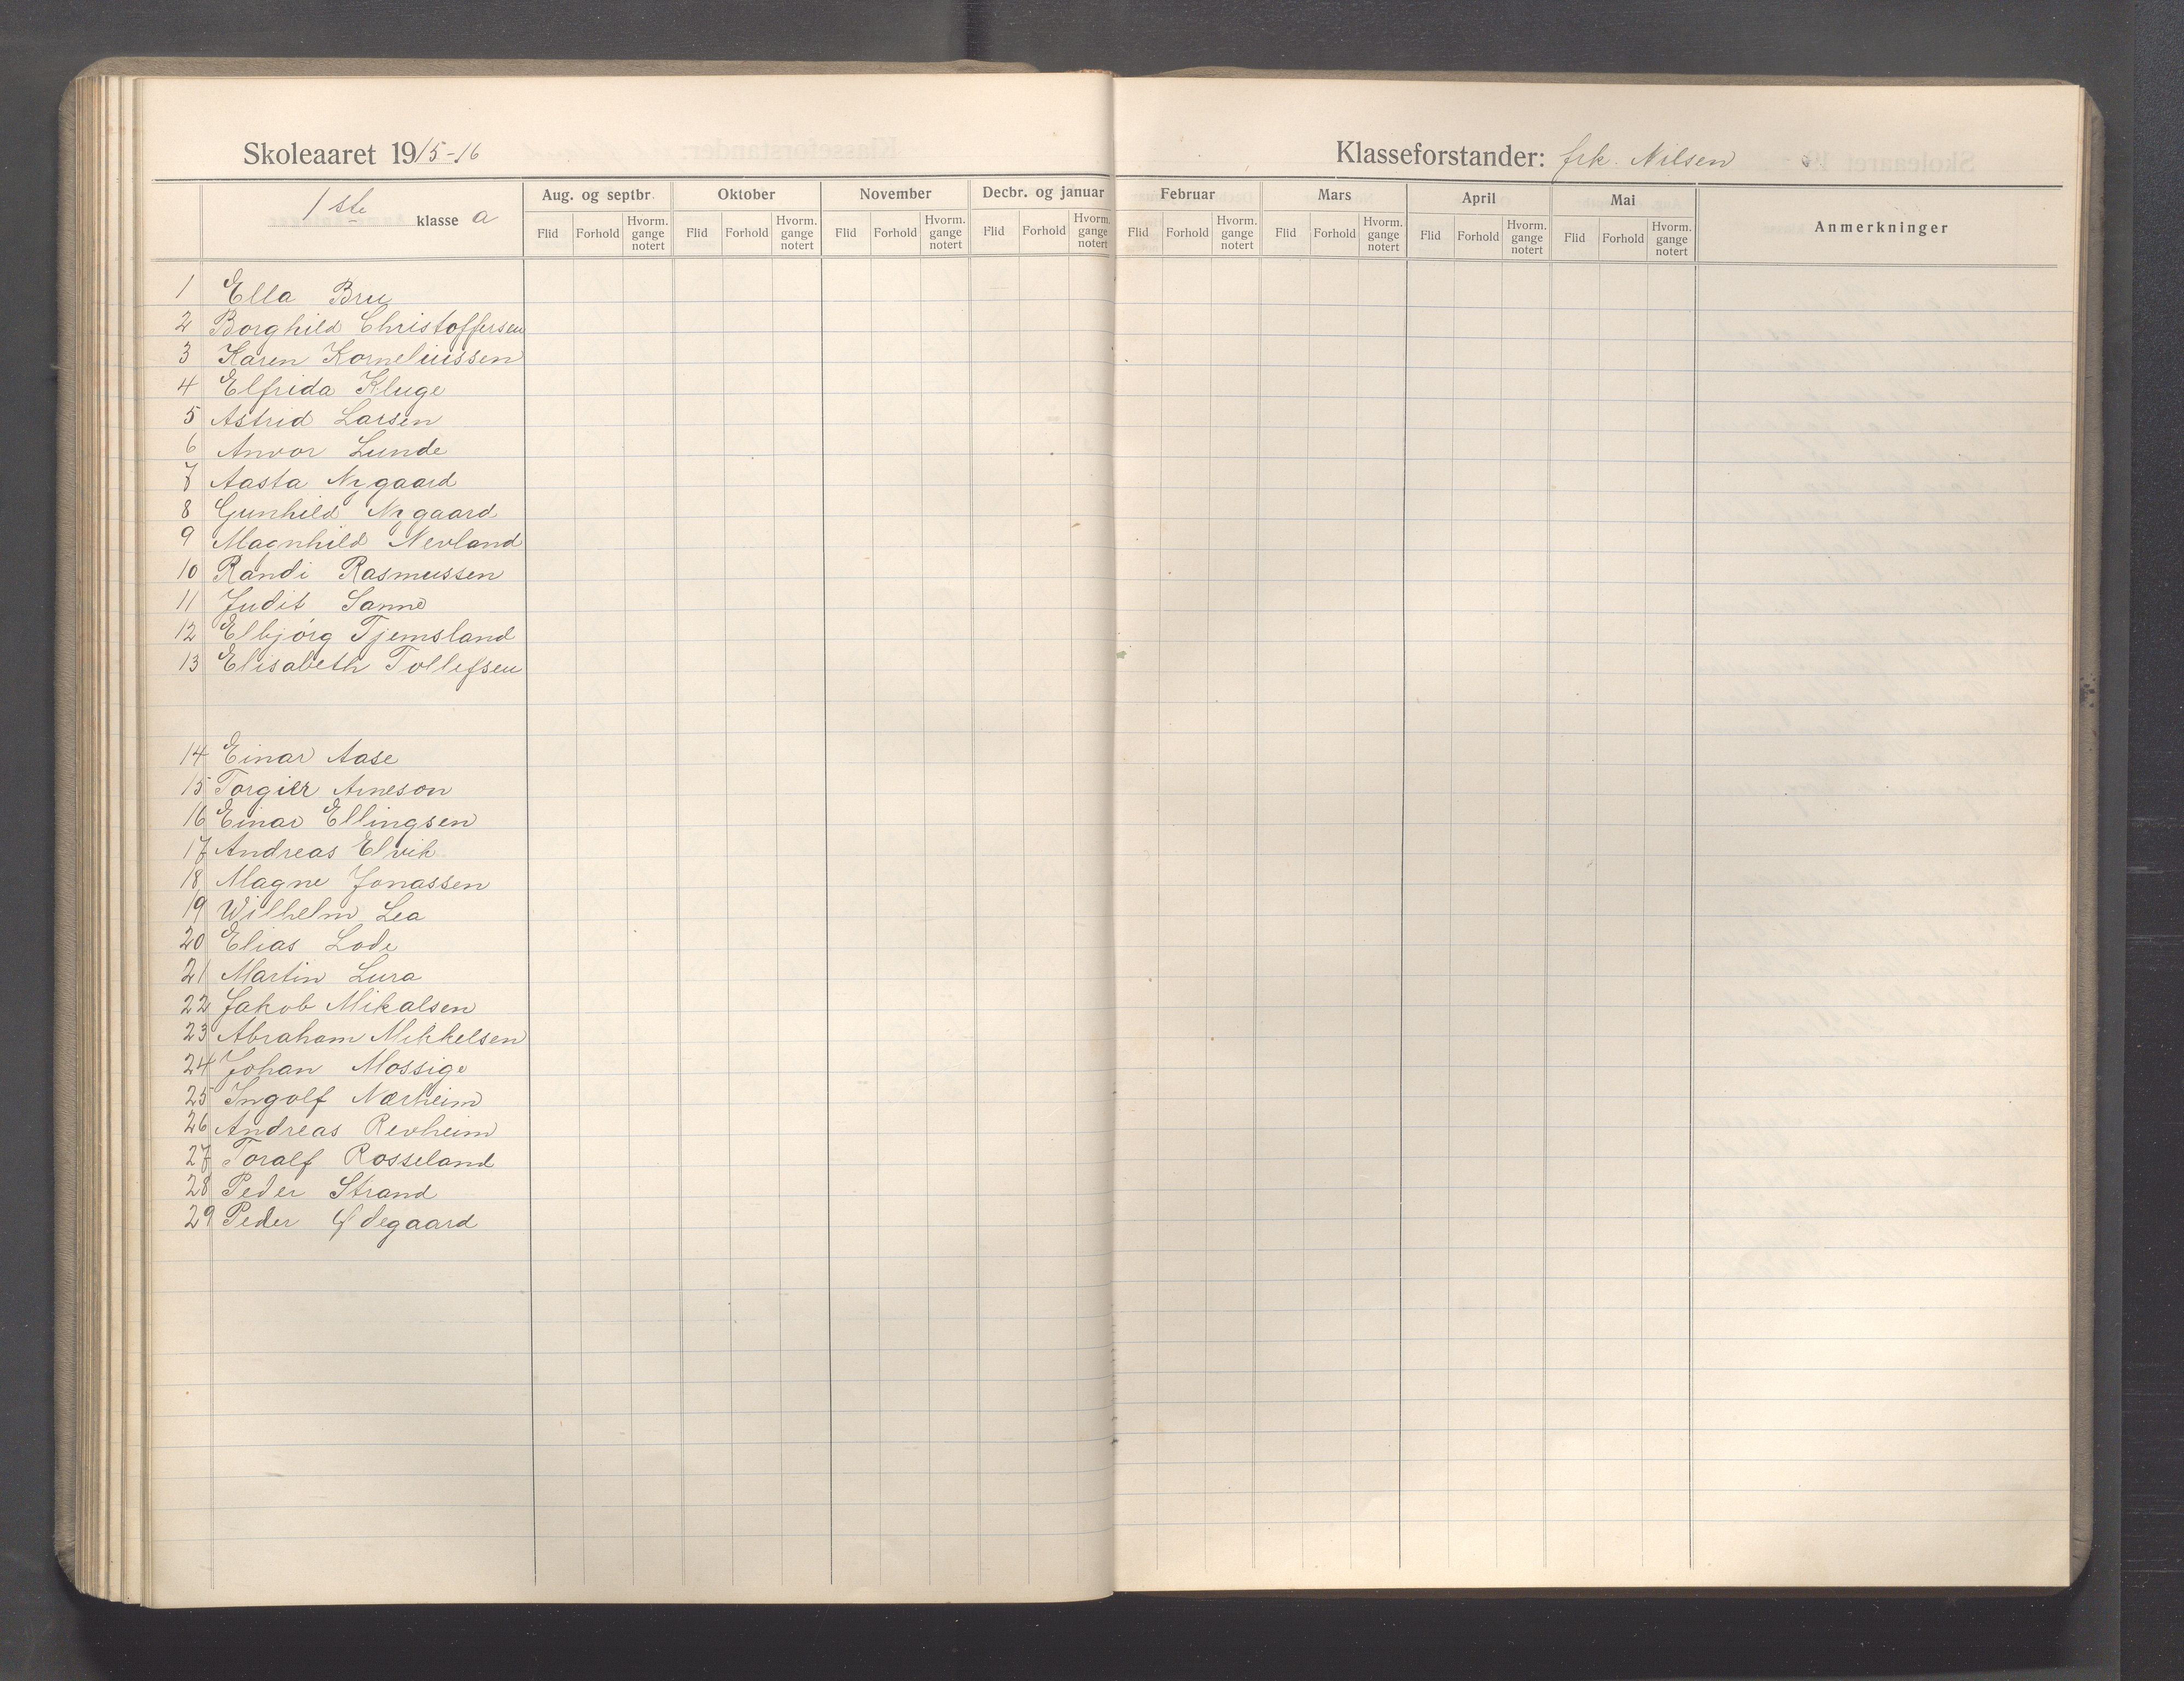 Skoleaaret 1915-16
Klasseforstander: frk. Nilsen
1ste klasse a
Aug. og septbr. Oktober November Decbr. og januar Februar Mars April Mai Anmerkninger
Flid Forhold Hvorm. gange notert Flid Forhold Hvorm. gange notert Flid Forhold Hvorm. gange notert Flid Forhold Hvorm. gange notert Flid Forhold Hvorm. gange notert Flid Forhold Hvorm. gange notert Flid Forhold Hvorm. gange notert Flid Forhold Hvorm. gange notert
1 Ella Bru
2 Borghild Christoffersen
3 Karen Korneliussen
4 Elfrida Kluge
5 Astrid Larsen
6 Anvor Lunde
7 Aasta Nygaard
8 Gunhild Nygaard
9 Magnhild Nevland
10 Randi Rasmussen
11 Judit Sanne
12 Elbjörg Tjemsland
13 Elisabeth Tollefsen
14 Einar Aase
15 Torgier Arneson
16 Einar Ellingsen
17 Andreas Elvik
18 Magne Jonassen
19 Wilhelm Lea
20 Elias Lode
21 Martin Lura
22 Jakob Mikalsen
23 Abraham Mikkelsen
24 Johan Mossige
25 Ingolf Nærheim
26 Andreas Revheim
27 Toralf Rosseland
28 Peder Strand
29 Peder Ødegaard